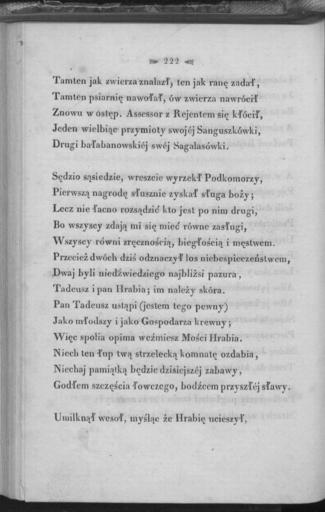 222
Tamten jak zwierza znalazł, ten jak ranę zadał,
Tamten psiarnię nawołał, ów zwierza nawrócił
Znowu w ostęp. Assessor z Rejentem się kłócił,
Jeden wielbiąc przymioty swojéj Sanguszkówki,
Drugi bałabanowskiéj swéj Sagalasówki.
Sędzio sąsiedzie, wreszcie wyrzekł Podkomorzy,
Pierwszą nagrodę słusznie zyskał sługa boży;
Lecz nie łacno rozsądzić kto jest po nim drugi,
Bo wszyscy zdają mi się mieć równe zasługi,
Wszyscy równi zręcznością, biegłością i męstwem.
Przecież dwóch dziś odznaczył los niebespieczeństwem,
Dwaj byli niedźwiedziego najbliźsi pazura,
Tadeusz i pan Hrabia; im należy skóra.
Pan Tadeusz ustąpi (jestem tego pewny)
Jako młodszy i jako Gospodarza krewny;
Więc spolia opima weźmiesz Mości Hrabia.
Niech ten łup twą strzelecką komnatę ozdabia,
Niechaj pamiątką będzie dzisiejszéj zabawy,
Godłem szczęścia łowczego, bodźcem przyszłéj sławy.
Umilknął wesoł, myśląc że Hrabię ucieszył,